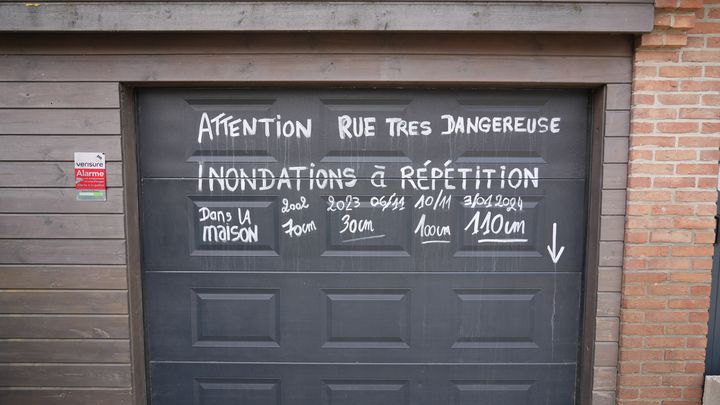 ATTENTION RUE TRES DANGEREUSE
INONDATIONS à RÉPÉTITION
2002 2023 06/11 10/11 3/01 2024
Dans LA MAISON 70cm 30cm 100cm 110cm
verisure
Alarme